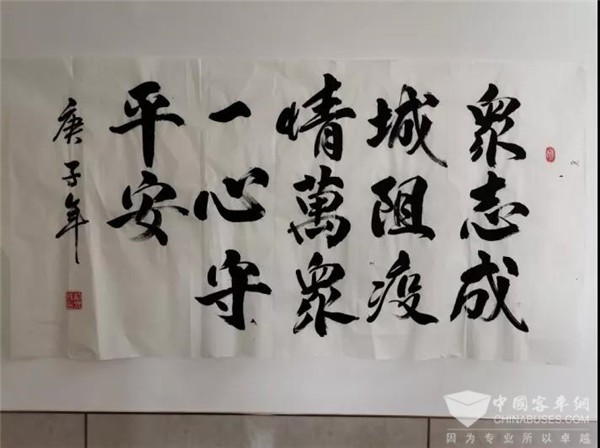 眾志成
城阻疫
情萬眾
一心守
平安
庚子年
中国客车網
CHINABUSES.COM
因为专业所以卓越